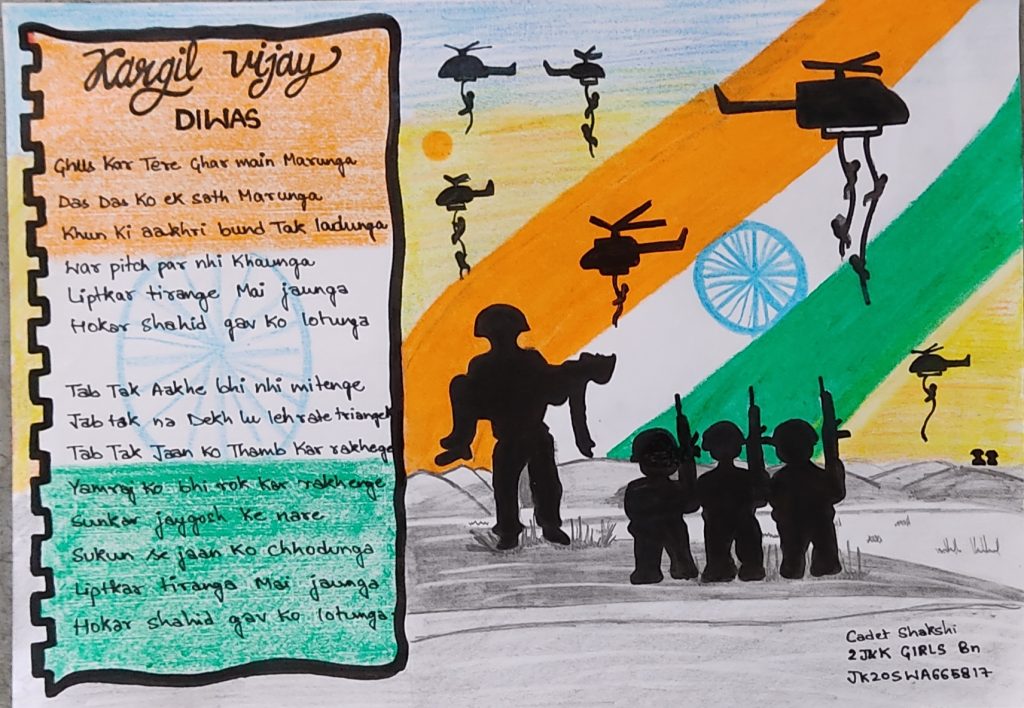 Kargil Vijay
DIWAS
Ghus Kar Tere Ghar main Marunga
Das Das Ko ek sath Marunga
Khun Ki aakhri bund Tak ladunga
War pitch par nhi Khaunga
Liptkar tirange Mai jaunga
Hokar shahid gav ko lotunga
Tab Tak Aakhe bhi nhi mitenge
Jab tak na Dekh lu lehrate triange
Tab Tak Jaan Ko Thamb Kar rakhege
Yamraj ko bhi rok kar rakhenge
Sunkar jaygosh ke nare
Sukun se jaan ko chhodunga
Liptkar tiranga Mai jaunga
Hokar shahid gav ko lotunga
Cadet Shakshi
2 J&K GIRLS Bn
JK20SWA665817